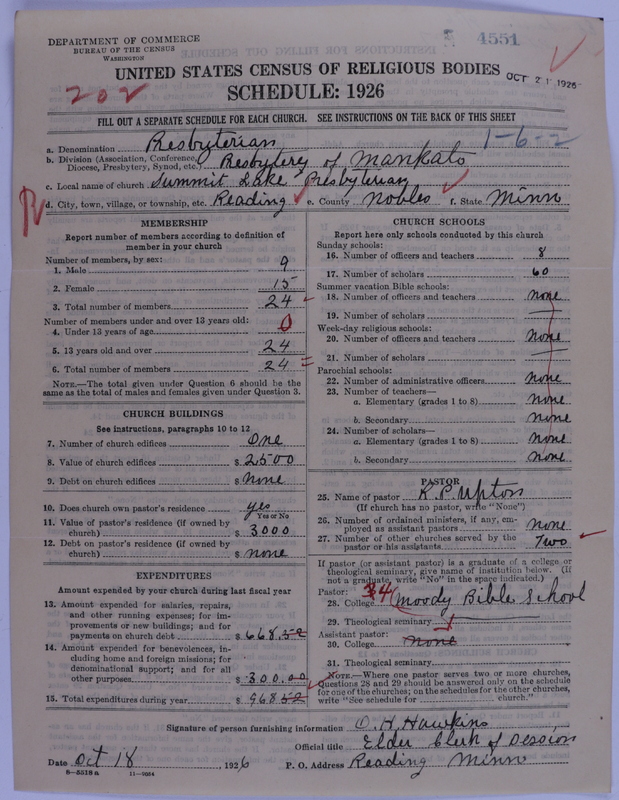 DEPARTMENT OF COMMERCE
BUREAU OF THE CENSUS
WASHINGTON
4551
OCT 21 1926
UNITED STATES CENSUS OF RELIGIOUS BODIES
202
SCHEDULE: 1926
FILL OUT A SEPARATE SCHEDULE FOR EACH CHURCH. SEE INSTRUCTIONS ON THE BACK OF THIS SHEET
1-6-2
a. Denomination Presbyterian
b. Division (Association, Conference, Diocese, Presbytery, Synod, etc.) Presbytery of Mankato
c. Local name of church Summit Lake Presbyterian
d. City, town, village, or township, etc. Reading e. County Nobles f. State Minn
R
MEMBERSHIP
Report number of members according to definition of
member in your church
Number of members, by sex:
1. Male 9
2. Female 15
3. Total number of members 24
Number of members under and over 13 years old:
4. Under 13 years of age 0
5. 13 years old and over 24
6. Total number of members 24
NOTE.—The total given under Question 6 should be the
same as the total of males and females given under Question 3.
CHURCH BUILDINGS
See instructions, paragraphs 10 to 12
7. Number of church edifices One
8. Value of church edifices $ 2500
9. Debt on church edifices $ None
10. Does church own pastor's residence yes
Yes or No
11. Value of pastor's residence (if owned by
church) $ 3000
12. Debt on pastor's residence (if owned by
church) $ none
EXPENDITURES
Amount expended by your church during last fiscal year
13. Amount expended for salaries, repairs,
and other running expenses; for im-
provements or new buildings; and for
payments on church debt $ 668.52
14. Amount expended for benevolences, in-
cluding home and foreign missions; for
denominational support; and for all
other purposes $ 300.00
15. Total expenditures during year $ 968 52
CHURCH SCHOOLS
Report here only schools conducted by this church
Sunday schools:
16. Number of officers and teachers 8
17. Number of scholars 60
Summer vacation Bible schools:
18. Number of officers and teachers none
19. Number of scholars —
Week-day religious schools:
20. Number of officers and teachers none
21. Number of scholars —
Parochial schools:
22. Number of administrative officers none
23. Number of teachers—
a. Elementary (grades 1 to 8) none
b. Secondary none
24. Number of scholars—
a. Elementary (grades 1 to 8) none
b. Secondary none
PASTOR
25. Name of pastor R. P. Upton
(If church has no pastor, write "None")
26. Number of ordained ministers, if any, em-
ployed as assistant pastors none
27. Number of other churches served by the
pastor or his assistants Two
If pastor (or assistant pastor) is a graduate of a college or
theological seminary, give name of institution below. (If
not a graduate, write "No" in the space indicated.)
Pastor:
28. College Moody Bible School
29. Theological seminary
Assistant pastor:
30. College none
31. Theological seminary
NOTE.—Where one pastor serves two or more churches,
Questions 28 and 29 should be answered only on the schedule
for one of the churches; on the schedules for the other churches,
write "See schedule for church."
Signature of person furnishing information O. H. Hawkins
Official title Elder Clerk of Session
Date Oct 18, 1926 P. O. Address Reading Minn
8—5518 a 11—9054